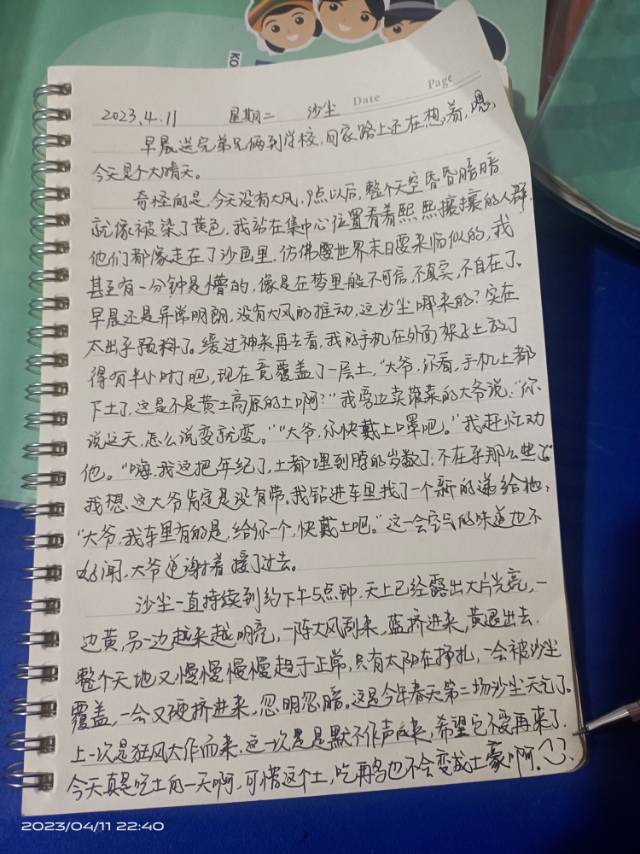 KO
Date
Page
2023.4.11 星期二 沙尘
早晨送完弟兄俩到学校,回家路上还在想着,嗯,
今天是个大晴天。
奇怪的是,今天没有大风,9点以后,整个天空昏昏暗暗
就像被染了黄色,我站在集中心位置看着熙熙攘攘的人群
他们都像走在了沙画里,仿佛世界末日要来临似的,我
甚至有一分钟是懵的,像是在梦里般不可信,不真实,不自在了、
早晨还是异常明朗,没有大风的推动,这沙尘哪来的?实在
太出乎预料了。缓过神来再去看,我的手机在外面架子上放了
得有半小时了吧,现在竟覆盖了一层土,“大爷,你看,手机上都
下土了,这是不是黄土高原的土啊?”我旁边卖菜的大爷说:“你
说这天,怎么说变就变。”“大爷,你快戴上口罩吧。”我赶忙劝
他。“嗨,我这把年纪了,土都埋到脖的岁数了,不在乎那么些了”
我想,这大爷肯定是没有带,我钻进车里找了一个新的递给他:
“大爷,我车里有的是,给你一个,快戴上吧。”这一会空气的味道也不
好闻,大爷道谢着接了过去。
沙尘一直持续到约下午5点钟,天上已经露出大片光亮,一
边黄,另一边越来越明亮,一阵大风刮来,蓝挤进来,黄退出去,
整个天地又慢慢慢慢趋于正常,只有太阳在挣扎,一会被沙尘
覆盖,一会又硬挤进来,忽明忽暗。这是今年春天第二场沙尘天气了。
上一次是狂风大作而来,这一次是默不作声而来,希望它不要再来了.
今天真是吃土的一天啊,可惜这个土,吃再多也不会变成土豪啊。
2023/04/11 22:40